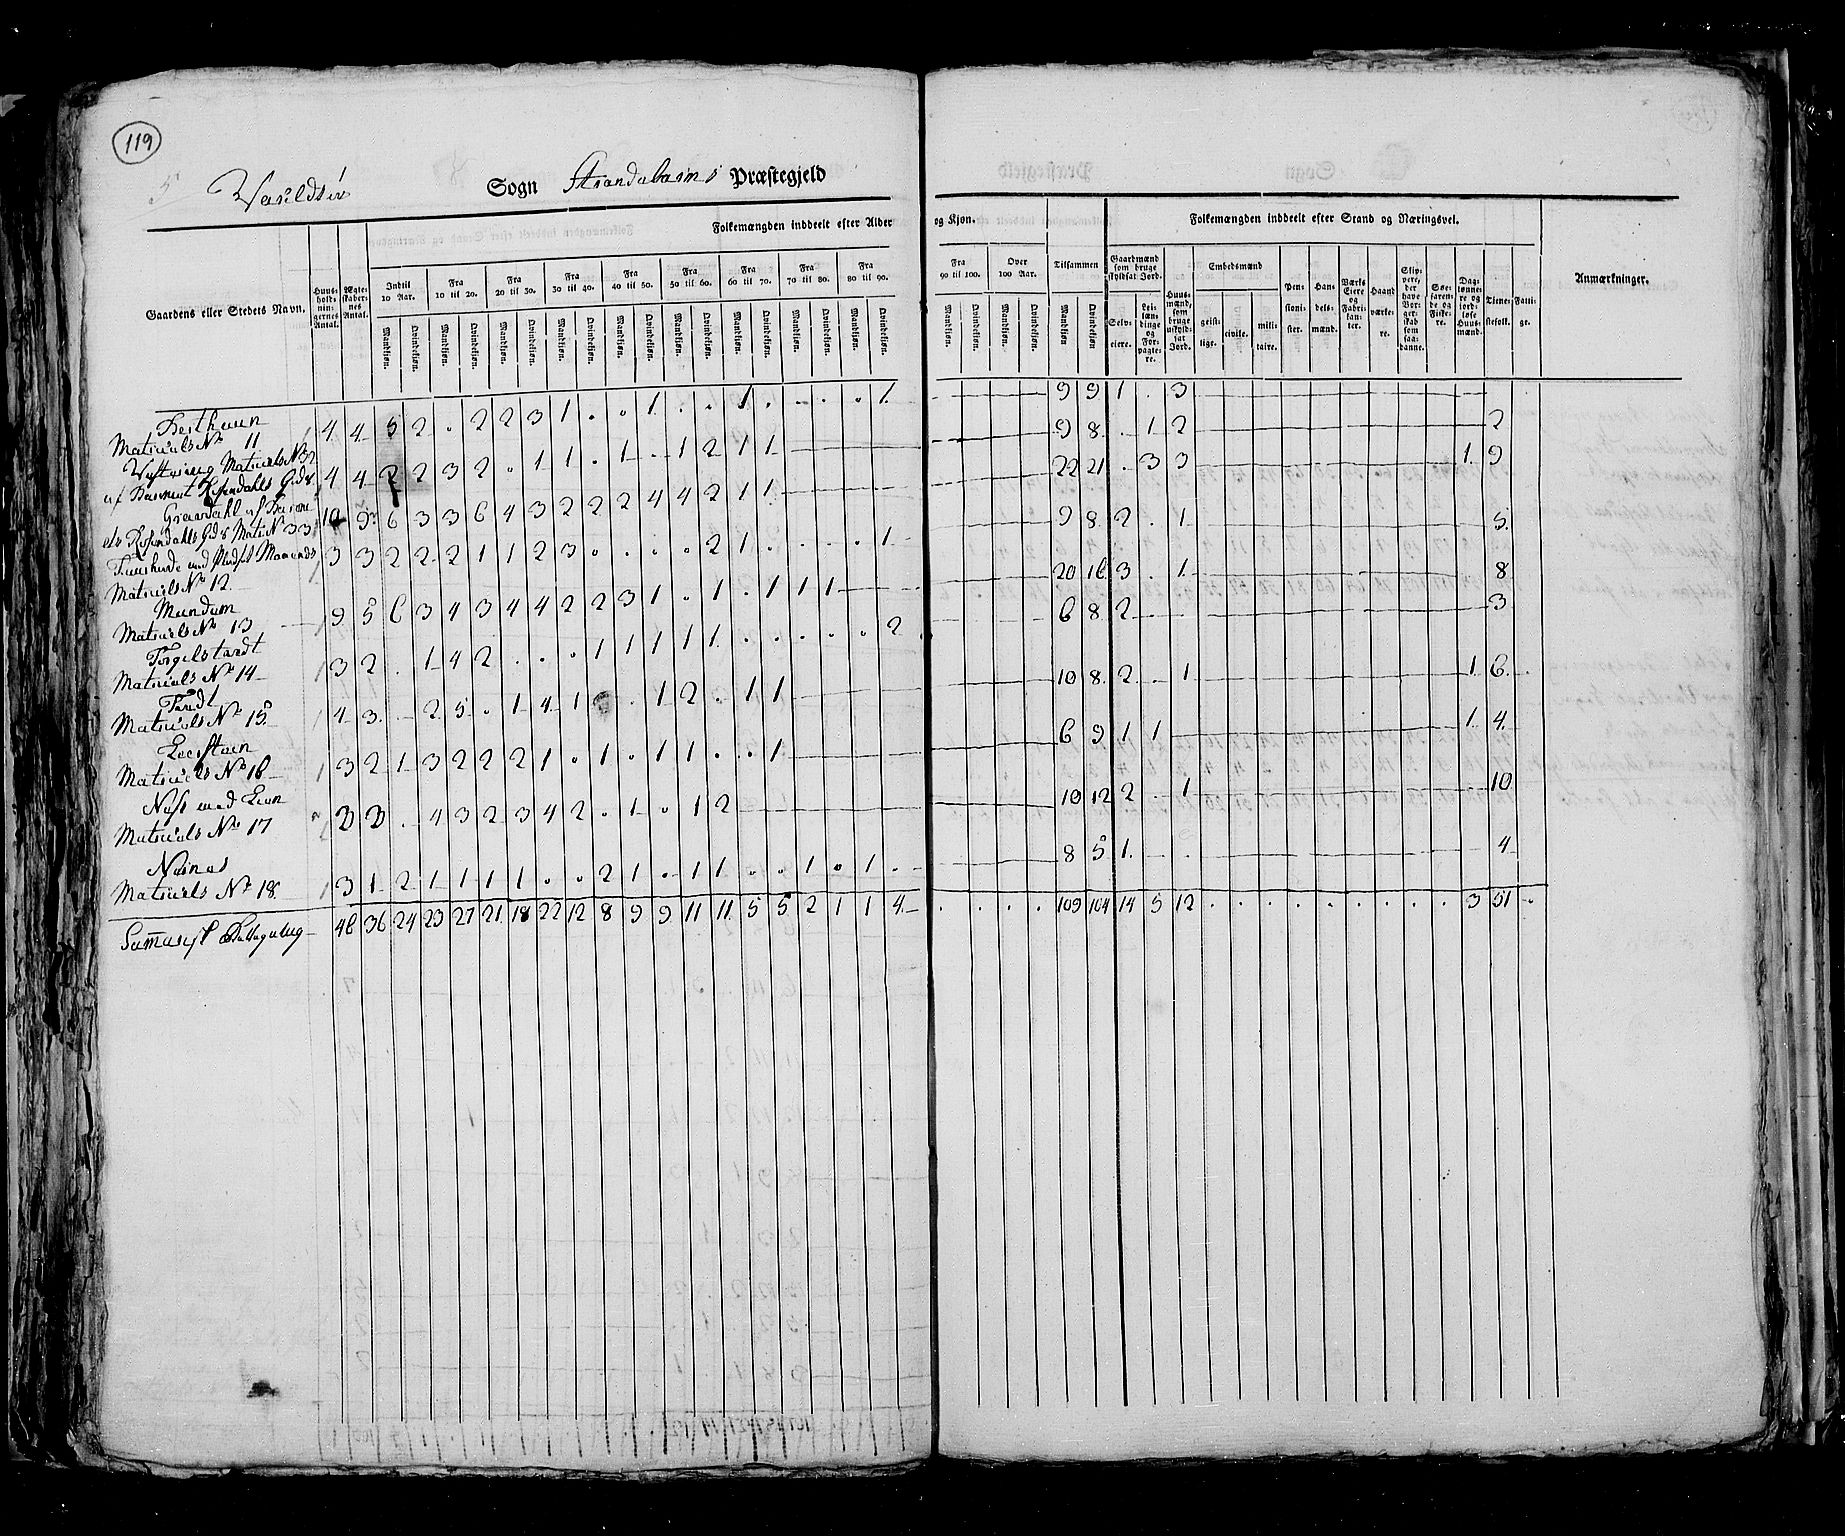 119
5 Sogn Strandebarms Præstegjeld
Gaardens eller Stedets Navn.
Huus-holdningernes Antal.
Ægteskabernes Antal.
Folkemængden inddeelt efter Alder og Kjøn.
Indtil 10 Aar. Fra 10 til 20. Fra 20 til 30. Fra 30 til 40. Fra 40 til 50. Fra 50 til 60. Fra 60 til 70. Fra 70 til 80. Fra 80 til 90. Fra 90 til 100. Over 100 Aar. Tilsammen
Mandkiøn. Qvindekiøn.
Folkemængden inddeelt efter Stand og Næringsvei.
Gaardmænd som bruge skyldsat Jord.
Selveiere. Leilændinge og Forpagtere.
Huusmænd, som bruge uskyldsat Jord.
Embedsmænd
geistlige. civile. militaire.
Pensionister. Handelsmænd. Værks Eiere og Fabrikanter. Haandværkere. Skippere, der have Borgerskab som saadanne. Søefarende og Fiskere. Daglønnere og jordløse Huusmænd. Tienestefolk. Fattige.
Anmærkninger.
Matriculs No 11 4 4 5 2 . 2 2 3 1 . . 1 . . 1 . . . . 1. 9 9 1 . 3
Matriculs No 32 4 4 2 2 3 2 . 1 1 . 1 . 1 2 1 1 9 8 . 1 2 2
Rosendahls Gods Matr. No 33 10 9 6 3 3 6 4 3 2 2 2 4 4 2 1 1 22 21 . 3 3 1. 9
Matriculs No 12 3 3 2 2 2 1 1 2 3 . . . . 2 1 . . . . 1 9 8 2 . 1 5.
Mundum
Matriculs No 13 9 5 6 3 4 3 4 4 2 2 3 1 . 1 . 1 1 1 20 16 3 . 1 8
Matriculs No 14 3 2 . 1 4 2 . . . 1 1 1 1 1 . . . . . 2 6 8 2 3
Matriculs No 15 4 3 . 2 5 . 1 4 1 . 1 2 . 1 1 10 8 2 . 1 1 6
Matriculs No 16 3 2 1 3 2 2 2 1 . 1 . 1 1 . . 1 6 9 1 1 1 4
Matriculs No 17 3 3 . 4 3 2 3 4 2 . 1 . 1 2 10 12 2 . 1 10
Matriculs No 18 3 1 2 1 1 1 1 . . 2 1 . 1 1 . . 1 . 1 . 8 5 1. 4
46 36 24 23 27 21 18 22 12 8 9 9 11 11 5 5 2 1 1 4 . . . . 109 104 14 5 12 . . . . . . . . . 3 51 .